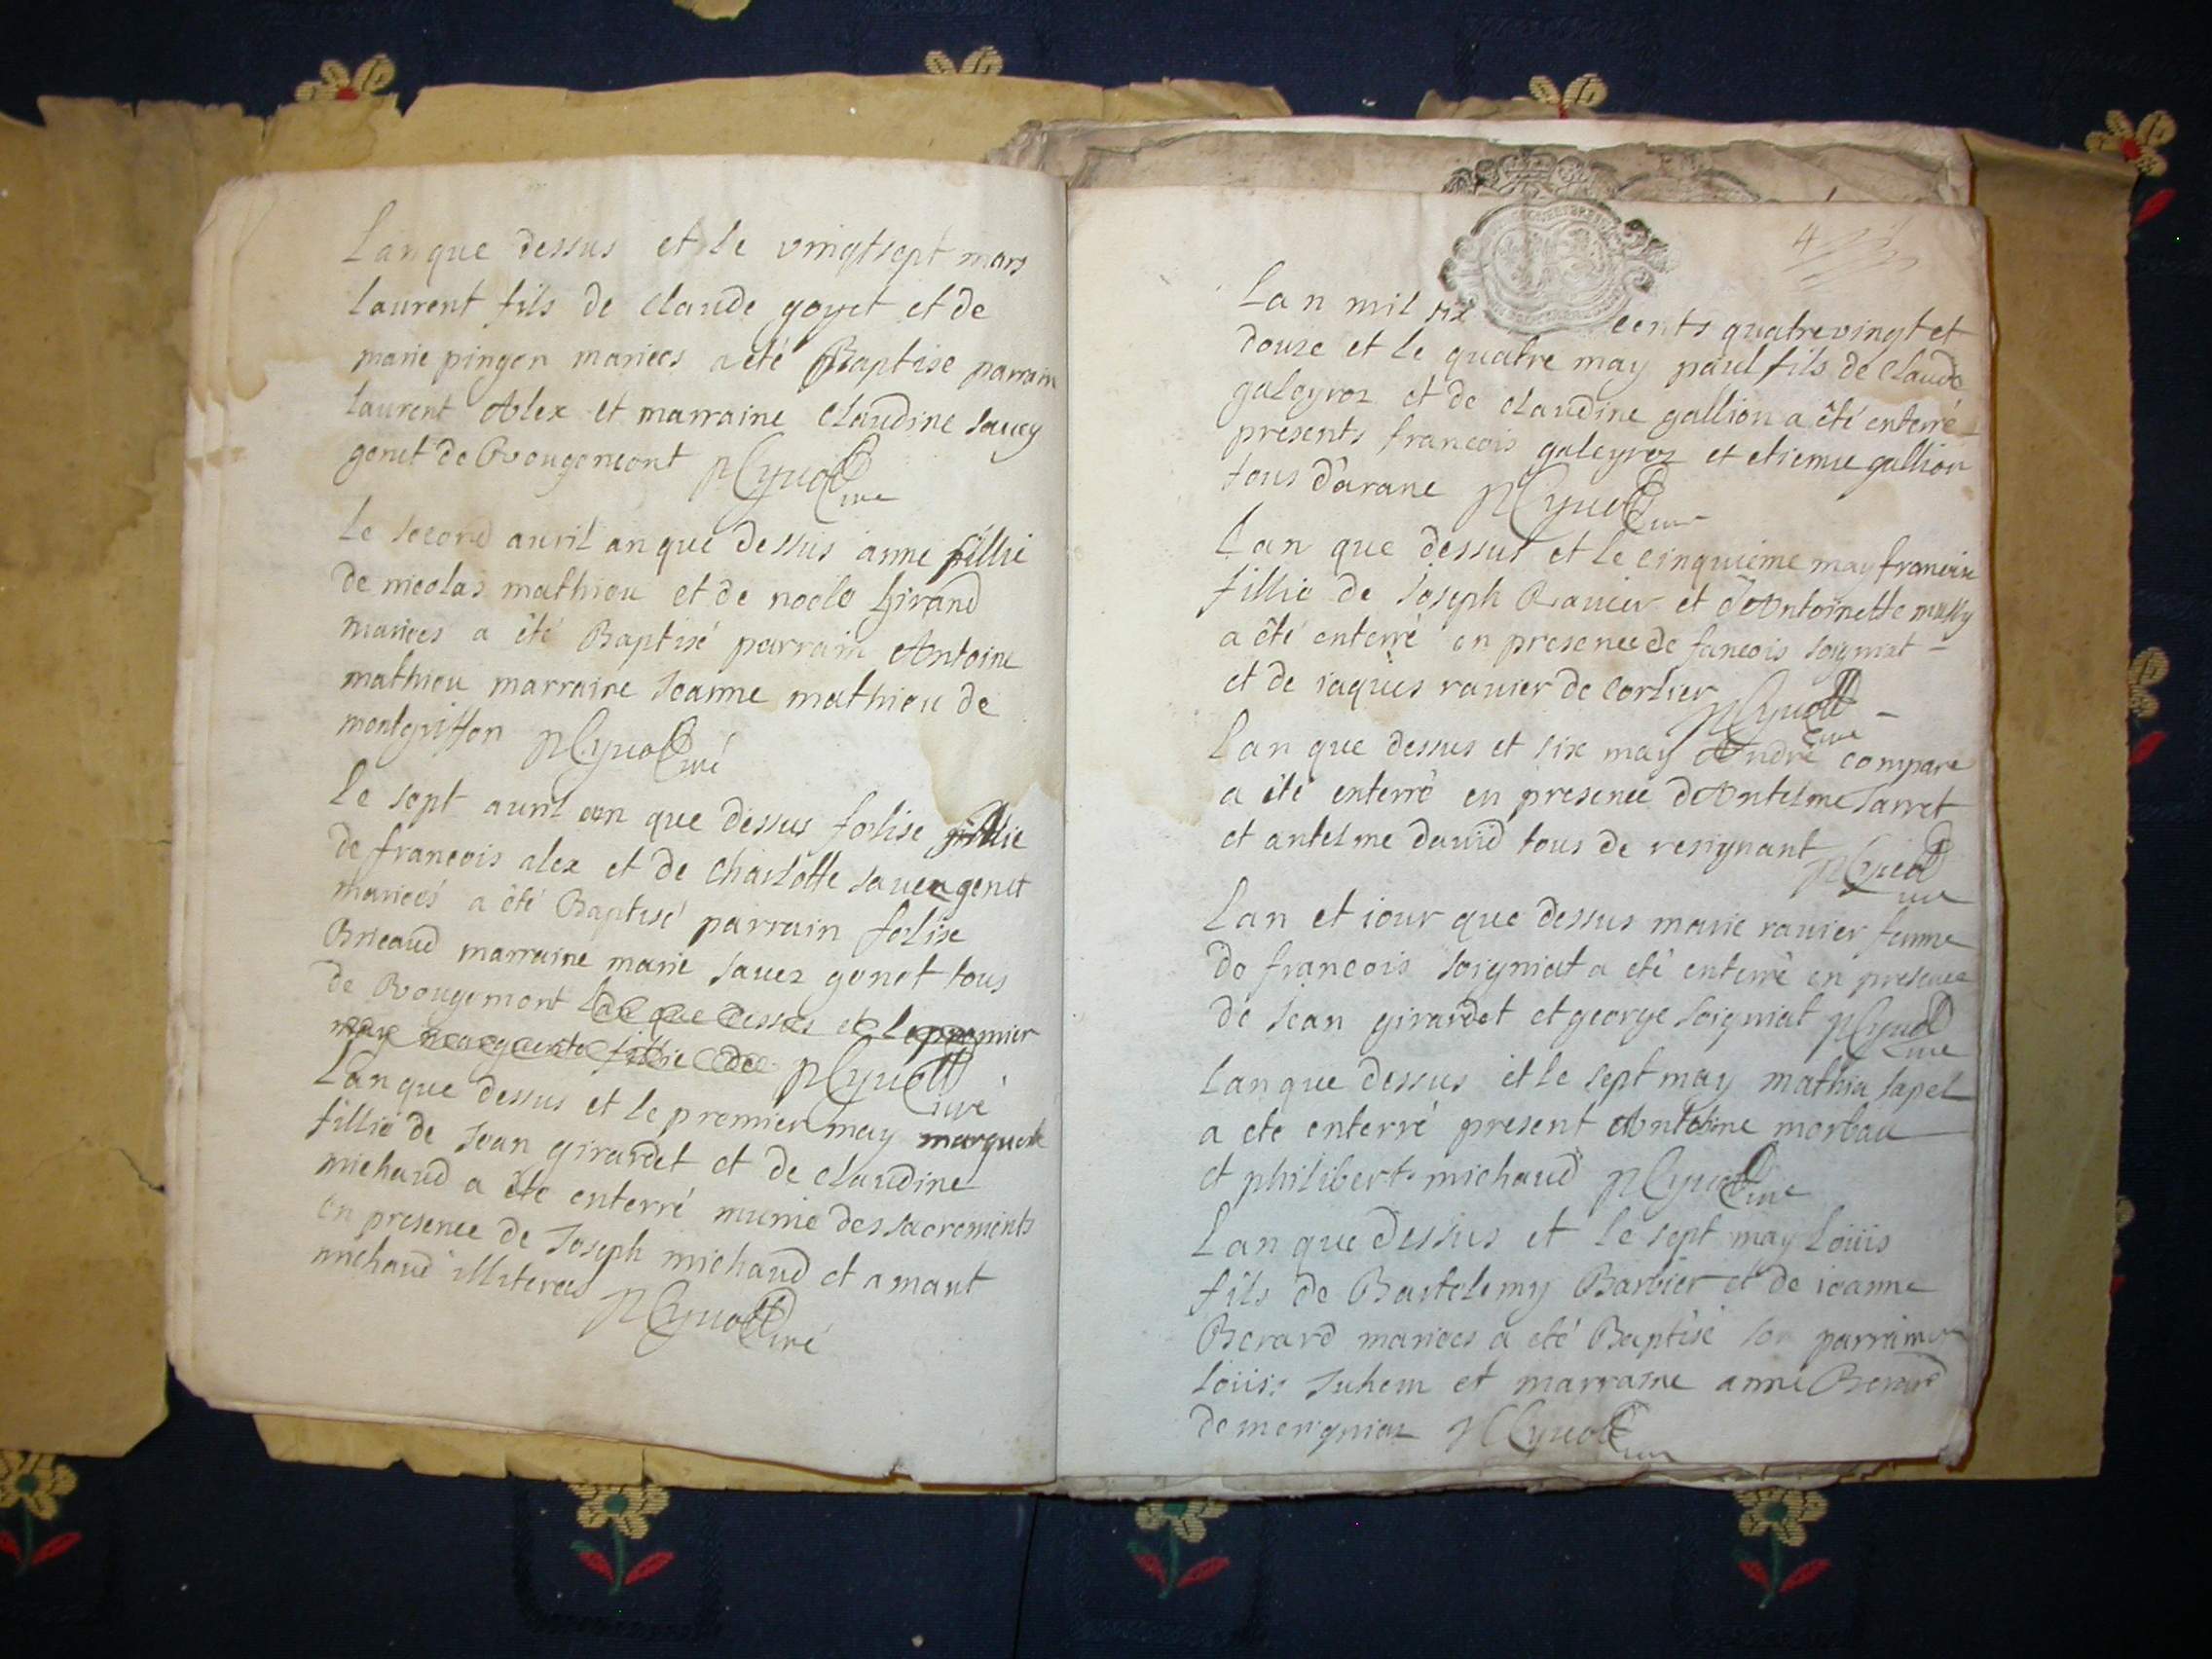 Lan que dessus et le vingtsept mars
laurent fils de claude goyet et de
marie pingon mariees a eté Baptisé parrain
laurent Alex et marraine claudine sauey
genet de Rougemont
Le second auril an que dessus anne fillie
de nicolas mathieu et de noele Girand
mariees a êté Baptisé parrain Antoine
mathieu marraine Jeanne mathieu de
montgriffon
Le sept auril an que dessus felise fillie
de francois alex et de charlotte sauey genet
mariees a êté Baptisé parrain felise
Brieaud marraine marie sauez genet tous
de Rougemont Lan que dessus et le premier
may marguerite fillie de
Lan que dessus et le premier may marguerite
fillie de Jean girardet et de claudine
michaud a ete enterré munie des sacrements
en presence de Joseph michaud et amant
michaud illiterees
4
Lan mil six cents quatrevingt et
douze et le quatre may paul fils de claude
galeyroz et de claudine gallion a êté enterré
presents francois galeyroz et etienne gallion
tous d'arane
Lan que dessus et le cinquieme may
fillie de Joseph Rauier et d'Antoinette mussy
a êté enterré en presence de fancois soigniat
et de iaques rauier de corlier
Lan que dessus et six may André compare
a été enterré en presence d'Antelme Jarret
et antelme dauid tous de resignant
Lan et iour que dessus marie rauier femme
de francois soigniat a eté enterré en presence
de Jean girardet et george soigniat
Lan que dessus et le sept may mathia sapel
a ete enterré present Antoine
et philibert michaud
Lan que dessus et le sept may Loüis
fils de Bartelemy Barbier et de ieanne
Berard mariees a eté Baptisé son parrain
Loüis Juhem et marraine anne Berard
de merigniaz